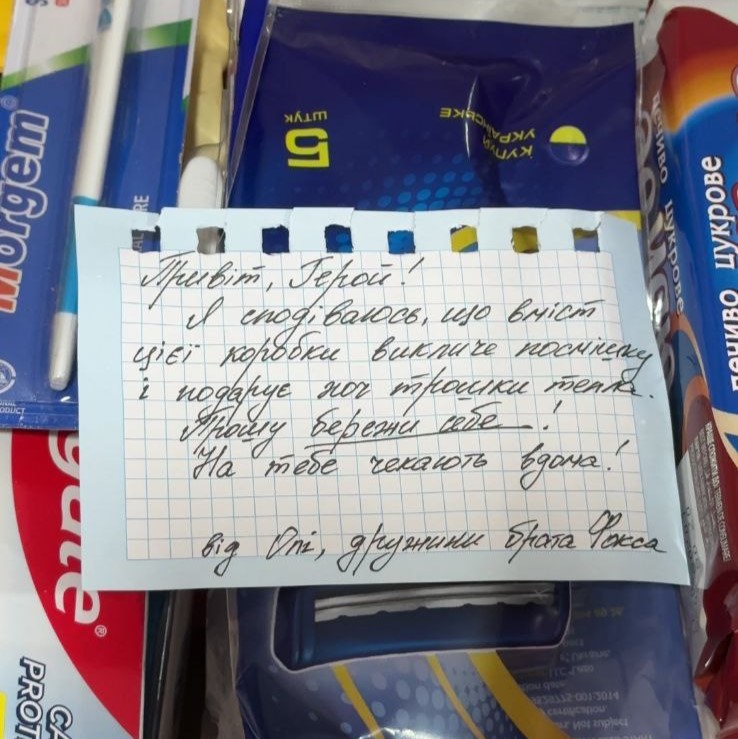 Morgem
5
ШТУК
КУПУЙ
УКРАЇНСЬКЕ
Привіт, Герой!
Я сподіваюсь, що вміст
цієї коробки викличе посмішку
і подарує хоч трошки тепла.
Прошу бережи себе!
На тебе чекають вдома!
від Олі, дружини брата Фокса
gate®
CA
PROT
ПЕЧИВО ЦУКРОВЕ